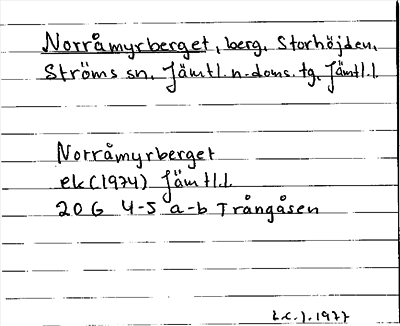 Norråmyrberget, berg, Storhöjden,
Ströms sn, Jämtl. n. doms. tg, Jämtl.l.
Norråmyrberget
ek (1974) Jämtl.l.
20 G 4-5 a-b Trångåsen
1977